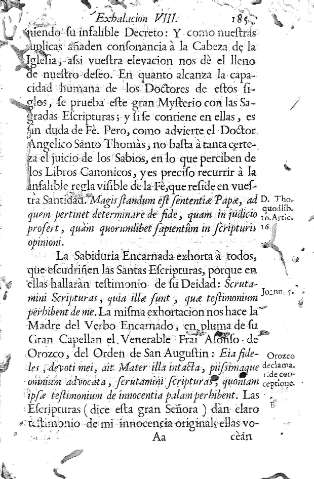 Exhalacion VIII. 185.
niendo su infalible Decreto: Y como nuestras
suplicas añaden consonancia à la Cabeza de la
Iglesia, assi vuestra elevacion nos dè el lleno
de nuestro deseo. En quanto alcanza la capa-
cidad humana de los Doctores de estos si-
glos, se prueba este gran Mysterio con las Sa-
gradas Escripturas; y si se contiene en ellas, es
sin duda de Fè. Pero, como advierte el Doctor
Angelico Santo Thomàs, no basta à tanta certe-
za el juicio de los Sabios, en lo que perciben de
los Libros Canonicos, y es preciso recurrir à la
infalible regla visible de la Fè, que reside en vues-
tra Santidad. Magis standum est sententiæ Papæ, ad
quem pertinet determinare de fide, quam in judicio
profert, quàm quorumlibet sapientum in scripturis
opinioni.
D. Tho.
quodlib.
Artic.
16
La Sabiduria Encarnada exhorta à todos,
que escudriñen las Santas Escripturas, porque en
ellas hallaràn testimonio de su Deidad: Scruta-
mini Scripturas, quia illæ sunt, quæ testimonium
perhibent de me. La misma exhortacion nos hace la
Joann. 5.
Madre del Verbo Encarnado, en pluma de su
Gran Capellan el Venerable Frai Alonso de
Orozco, del Orden de San Augustin: Eia fide-
les, devoti mei, ait Mater illa intacta, piissimaque
omnium advocata, scrutamini scripturas, quoniam
ipsæ testimonium de innocentia palam perhibent. Las
Orozco
declama.
de con-
ceptione.
Escripturas (dice esta gran Señora) dàn claro
testimonio de mi innocencia original; ellas vo-
Aa cèan